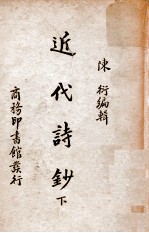 陳衍編輯
近代詩鈔 下
商務印書館發行